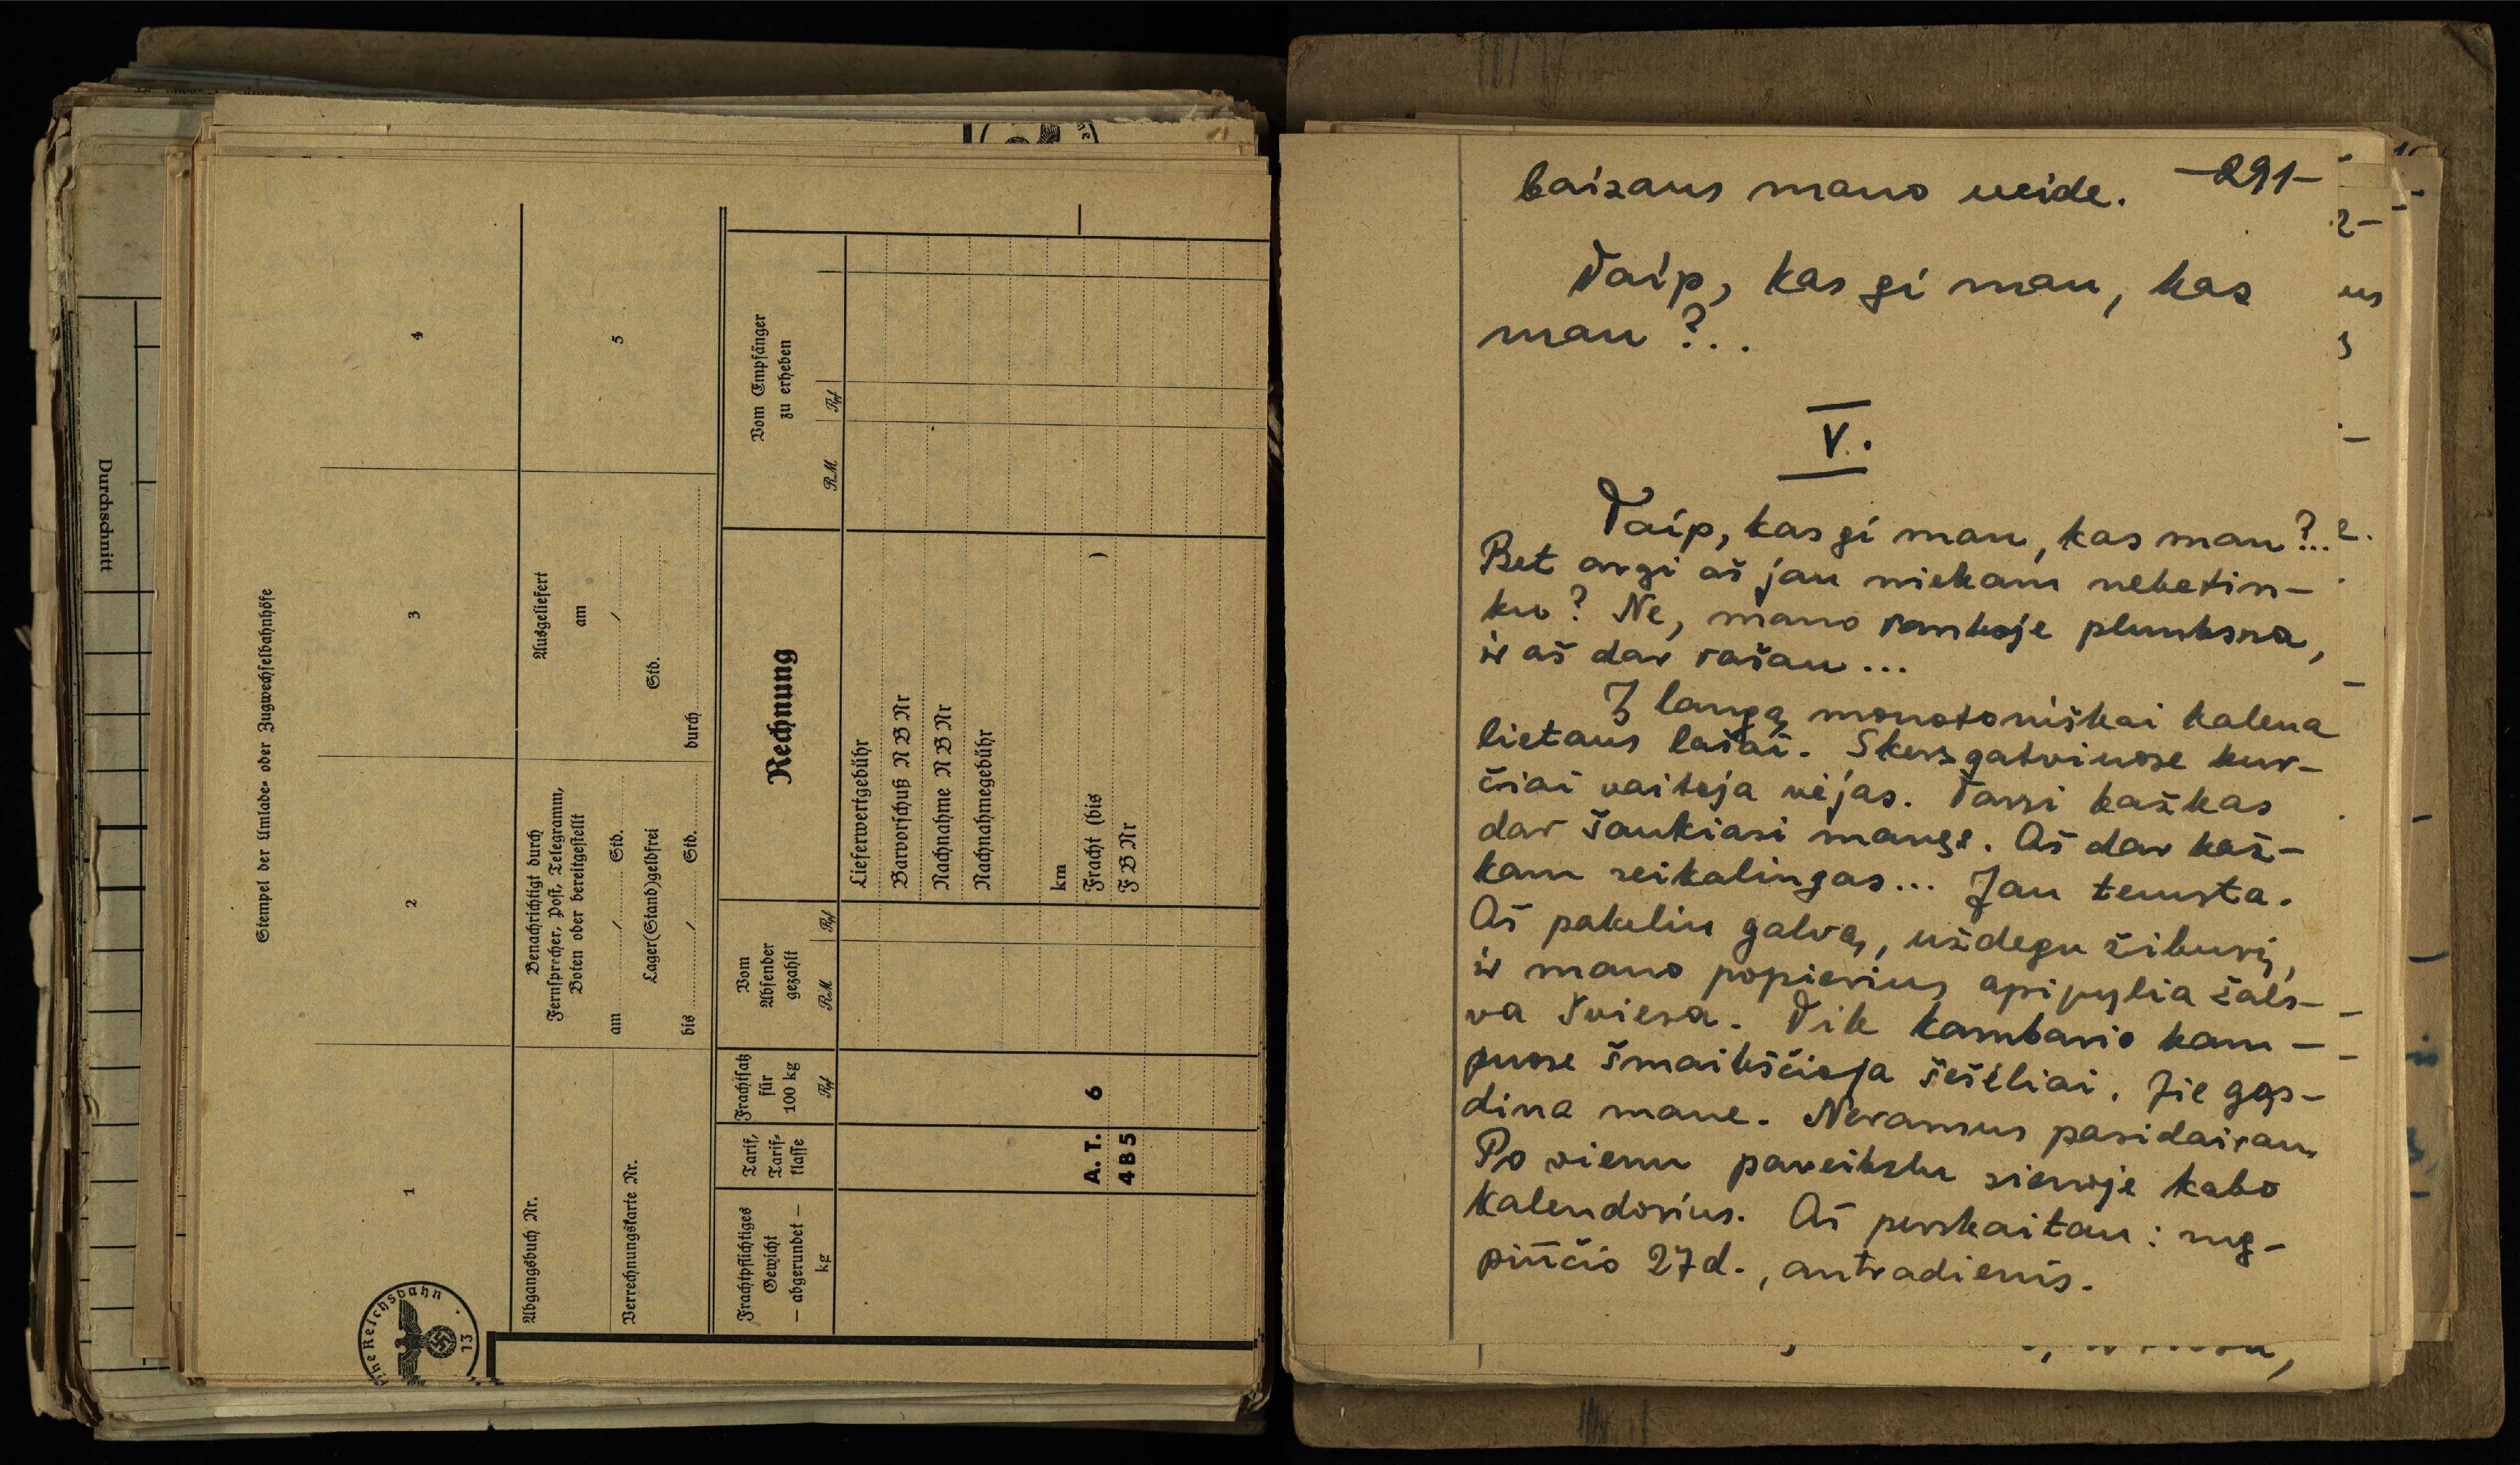 Durchschnitt
Stempel der Umlade- oder Zugwechselbahnhöfe
1
2
3
4
Abgangsbuch Nr.
Verrechnungskarte Nr.
Benachrichtigt durch
Fernsprecher, Post, Telegramm,
Boten oder bereitgestellt
am / Std.
Lager(Stand)geldfrei
bis / Std.
Ausgeliefert
am
/
Std.
durch
5
Frachtpflichtiges
Gewicht
— abgerundet —
kg
Tarif,
Tarif-
klasse
Frachtsatz
für
100 kg
Rpf
Vom
Absender
gezahlt
RM Rpf
Rechnung
Vom Empfänger
zu erheben
RM Rpf
Lieferwertgebühr
Barvorschuß N B Nr
Nachnahme N B Nr
Nachnahmegebühr
km
A. T. 6 Fracht (bis )
4 B 5 F B Nr
ne Reichsbahn
13
—291—
baisaus mano veide.
Taip, kas gi man, kas
man?..
V.
Taip, kas gi man, kas man?..
Bet argi aš jau niekam nebetin-
ku? Ne, mano rankoje plunksna,
ir aš dar rašau...
Į langą monotoniškai kalena
lietaus lašai. Skersgatviuose kur-
čiai vaitoja vėjas. Tarsi kažkas
dar šaukiasi manęs. Aš dar kaž-
kam reikalingas... Jau temsta.
Aš pakeliu galvą, uždegu žiburį,
ir mano popierius apipylia žals-
va šviesa. Tik kambario kam-
puose šmaikščioja šešėliai. Jie gąs-
dina mane. Neramus pasidairau.
Po vienu paveikslu sienoje kabo
kalendorius. Aš perskaitau: rug-
piučio 27 d., antradienis.